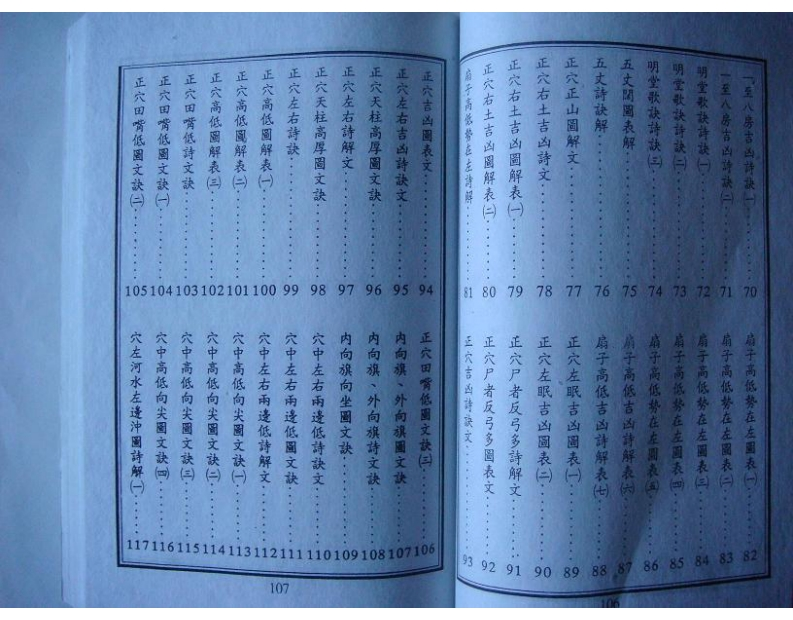 一至八房吉凶詩訣㈠…………70
一至八房吉凶詩訣㈡…………71
明堂歌訣詩訣㈠…………72
明堂歌訣詩訣㈡…………73
明堂歌訣詩訣㈢…………74
五丈闊圖表解…………75
五丈詩訣解…………76
正穴正山圖解文…………77
正穴右土吉凶詩文…………78
正穴右土吉凶圖解表㈠…………79
正穴右土吉凶圖解表㈡…………80
扇子高低勢在左詩解…………81
扇子高低勢在左圖表㈠…………82
扇子高低勢在左圖表㈡…………83
扇子高低勢在左圖表㈢…………84
扇子高低勢在左圖表㈣…………85
扇子高低勢在左圖表㈤…………86
扇子高低吉凶詩解表㈥…………87
扇子高低吉凶詩解表㈦…………88
正穴左眠吉凶圖表㈠…………89
正穴左眠吉凶圖表㈡…………90
正穴尸者反弓多詩解文…………91
正穴尸者反弓多圖表文…………92
正穴吉凶詩訣文…………93
106
正穴吉凶圖表文…………94
正穴左右吉凶詩訣文…………95
正穴天柱高厚圖文訣…………96
正穴左右詩解文…………97
正穴天柱高厚圖文訣…………98
正穴左右詩訣…………99
正穴高低圖解表㈠…………100
正穴高低圖解表㈡…………101
正穴高低圖解表㈢…………102
正穴田嘴低詩文訣…………103
正穴田嘴低圖文訣㈠…………104
正穴田嘴低圖文訣㈡…………105
正穴田嘴低圖文訣㈢…………106
內向旗、外向旗圖文訣…………107
內向旗、外向旗詩文訣…………108
內向旗向坐圖文訣…………109
穴中左右兩邊低詩訣文…………110
穴中左右兩邊低圖文訣…………111
穴中左右兩邊低詩解文…………112
穴中高低向尖圖文訣㈠…………113
穴中高低向尖圖文訣㈡…………114
穴中高低向尖圖文訣㈢…………115
穴中高低向尖圖文訣㈣…………116
穴左河水左邊沖圖詩解㈠…………117
107